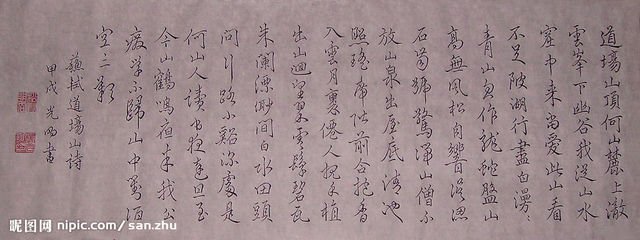 道場山頂何山麓上澈
雲峯下幽谷我從山水
窟中来尚愛此山看
不足陂湖行盡白漫々
青山忽作龍蛇盤山
高無風松自響误認
石齒號驚湍山僧不
放山泉出屋底清池
照瑤席阶前合抱香
入雲月裏僊人親手植
出山迴望翠雲鬟碧瓦
朱闌漂渺間白水田頭
問行路小谿深處是
何山人讀書夜達旦至
今山鶴鳴夜半我今
廢學不歸山中對酒
空三歎
蘇軾道場山詩
甲戌光明書
昵图网 nipic.com/san.zhu